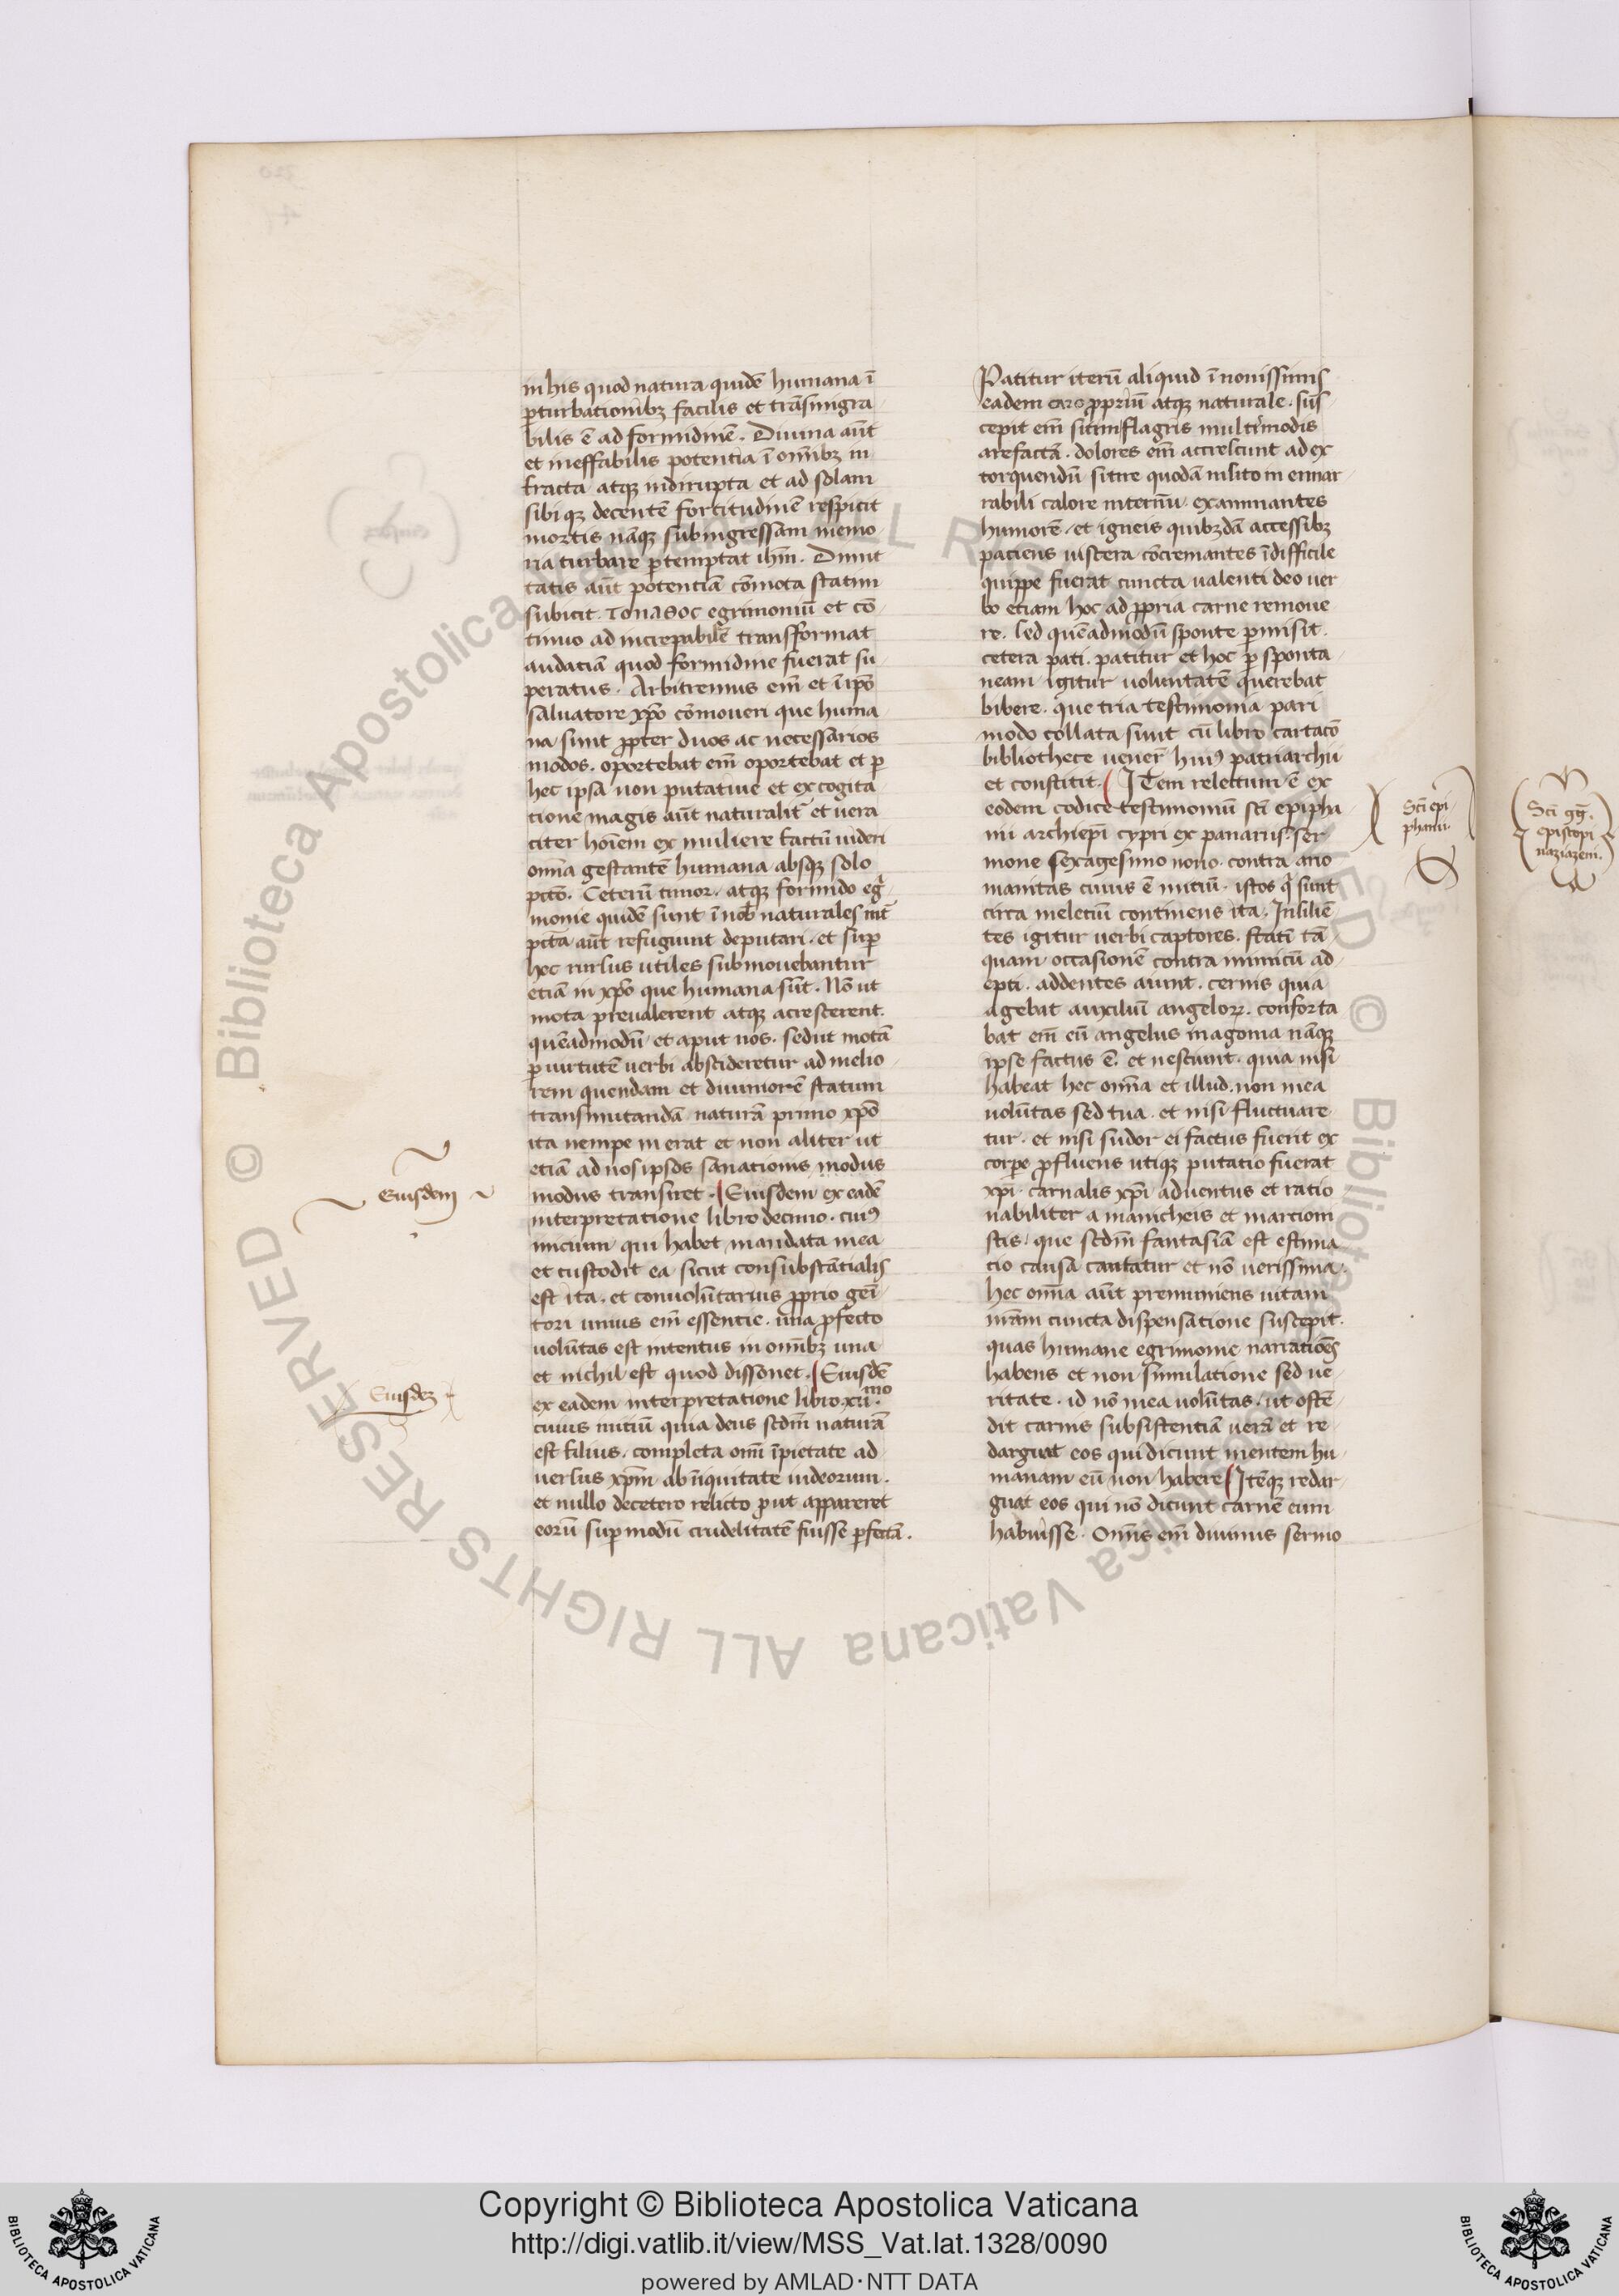 in his quod natura quidē humana ī
ꝑturbationibꝫ facilis et trāsmigra
bilis ē ad formidinē. Diuina aūt
et ineffabilis potentia ī om̄ibꝫ in
fracta atqꝫ indirupta et ad solam
sibi qꝫ decentē fortitudinē respicit
mortis nāqꝫ subingressam memo
ria turbare ꝑtemptat ihm̄. Diuit
tatis aūt potentiā cōmota statim
subicit. egrimoniū et cō
tinuo ad increpabilē transformat
audaciā quod formidine fuerat su
peratus. Arbitremus em̄ et ī ipō
saluatore xp̄o cōmoueri que huma
na sunt ꝓpter duos ac necessarios
modos. oportebat em̄ oportebat et ꝑ
hec ipsa non putatiue et ex cogita
tione magis aūt naturalit̄ et uera
citer hoīem ex muliere factū uideri
om̄ia gestantē humana absqꝫ solo
pctō. Ceterū timor. atqꝫ formido egⁱ
monie quidē sunt ī nob̄ naturales int̄
pctā aūt refugiunt deputari. et suꝑ
hoc rursus utiles submouebantur
etiā in xp̄o que humana sūt. Nō ut
mota preualerent atqꝫ acrescerent.
quēadmodū et aput nos. sed ut motā
ꝑ uirtutē uerbi abscideretur ad melio
rem quendam et diuiniorē statum
transmutandā naturā primo xp̄o
ita nempe in erat et non aliter ut
etiā ad nos ipsos sanationis modus
modus transiret. Eiusdem ex eadē
interpretatione libro decimo. cuiꝰ
inicium qui habet mandata mea
et custodit ea sicut consubstātialis
est ita. et conuolūtarius ꝓprio geni
tori unius em̄ essentie. una ꝓfecto
uolūtas est intentus in om̄ibꝫ una
et nichil est quod dissonet. Eiusdē
ex eadem interpretatione libro. xii.mo
cuius initiū quia deus scdm̄ naturā
est filius. completa om̄i īpietate ad
uersus xp̄m ab iniquitate iudeorum.
et nullo decetero relicto ꝓut appareret
eorū suꝑ modū crudelitatē fuisse ꝑfectā.
Eiusdem
Eiusdeꝫ
Patitur iterū aliquid ī nouissimis
eadem caro ꝓpriū atqꝫ naturale. sus
cepit em̄ sitim flagris multimodis
arefactā. dolores em̄ accrescunt ad ex
torquendū sitire quodā insito in ennar
rabili calore internū examinantes
humorē. et igneis quibꝫdā accessibꝫ
paciens uiscera cōcremantes īdifficile
quippe fuerat cuncta ualenti deo uer
bo etiam hoc ad ꝓpria carne remoue
re. sed quēadmodū sponte ꝑmisit.
cetera pati. patitur et hoc ꝑ sponta
neam igitur uoluntatē querebat
bibere. que tria testimonia pari
modo collata sunt cū libro cartacō
bibliothece uener̄ huiꝰ patriarchii
et constitit. Item relectum ē ex
eodem codice testimoniū sc̄i epipha
nii archiep̄i cypri ex panariis. ser
mone sexagesimo nono. contra ario
manitas cuius ē initiū. istos qⁱ sunt
circa meletiū continens ita. Insiliē
tes igitur uerbi captores. statī tā
quam occasionē contra inimicū ad
epti. addentes aiunt. cernis quia
agebat auxiliū angeloꝝ. conforta
bat em̄ eū angelus in agonia nāqꝫ
ipse factus ē. et nesciunt. quia nisi
habeat hec om̄ia et illud. non mea
uolūtas sed tua. et nisi fluctuare
tur. et nisi sudor ei factus fuerit ex
corpe ꝓfluens utiqꝫ putatio fuerat
xp̄i. carnalis xp̄i aduentus et ratio
nabiliter a manicheis et marcioni
stis. que scdm̄ fantasiā est estima
tio causa cantatur et nō uerissima.
hec om̄ia aūt premuniens uitam
nr̄am cuncta dispensatione suscepit.
quas humane egrimonie narrationēs
habens et non simulatione sed ue
ritate. id nō mea uolūtas. ut ostē
dit carnis subsistentiā uerā et re
darguat eos qui dicunt mentem hu
manam eū non habere Itēqꝫ redar
guat eos qui nō dicunt carnē eum
habuisse. Om̄is em̄ diuinus sermo
Sc̄i epi
phanii.
Sc̄i gḡ.
episcopi
naziazeni.
Copyright © Biblioteca Apostolica Vaticana
http://digi.vatlib.it/view/MSS_Vat.lat.1328/0090
powered by AMLAD·NTT DATA